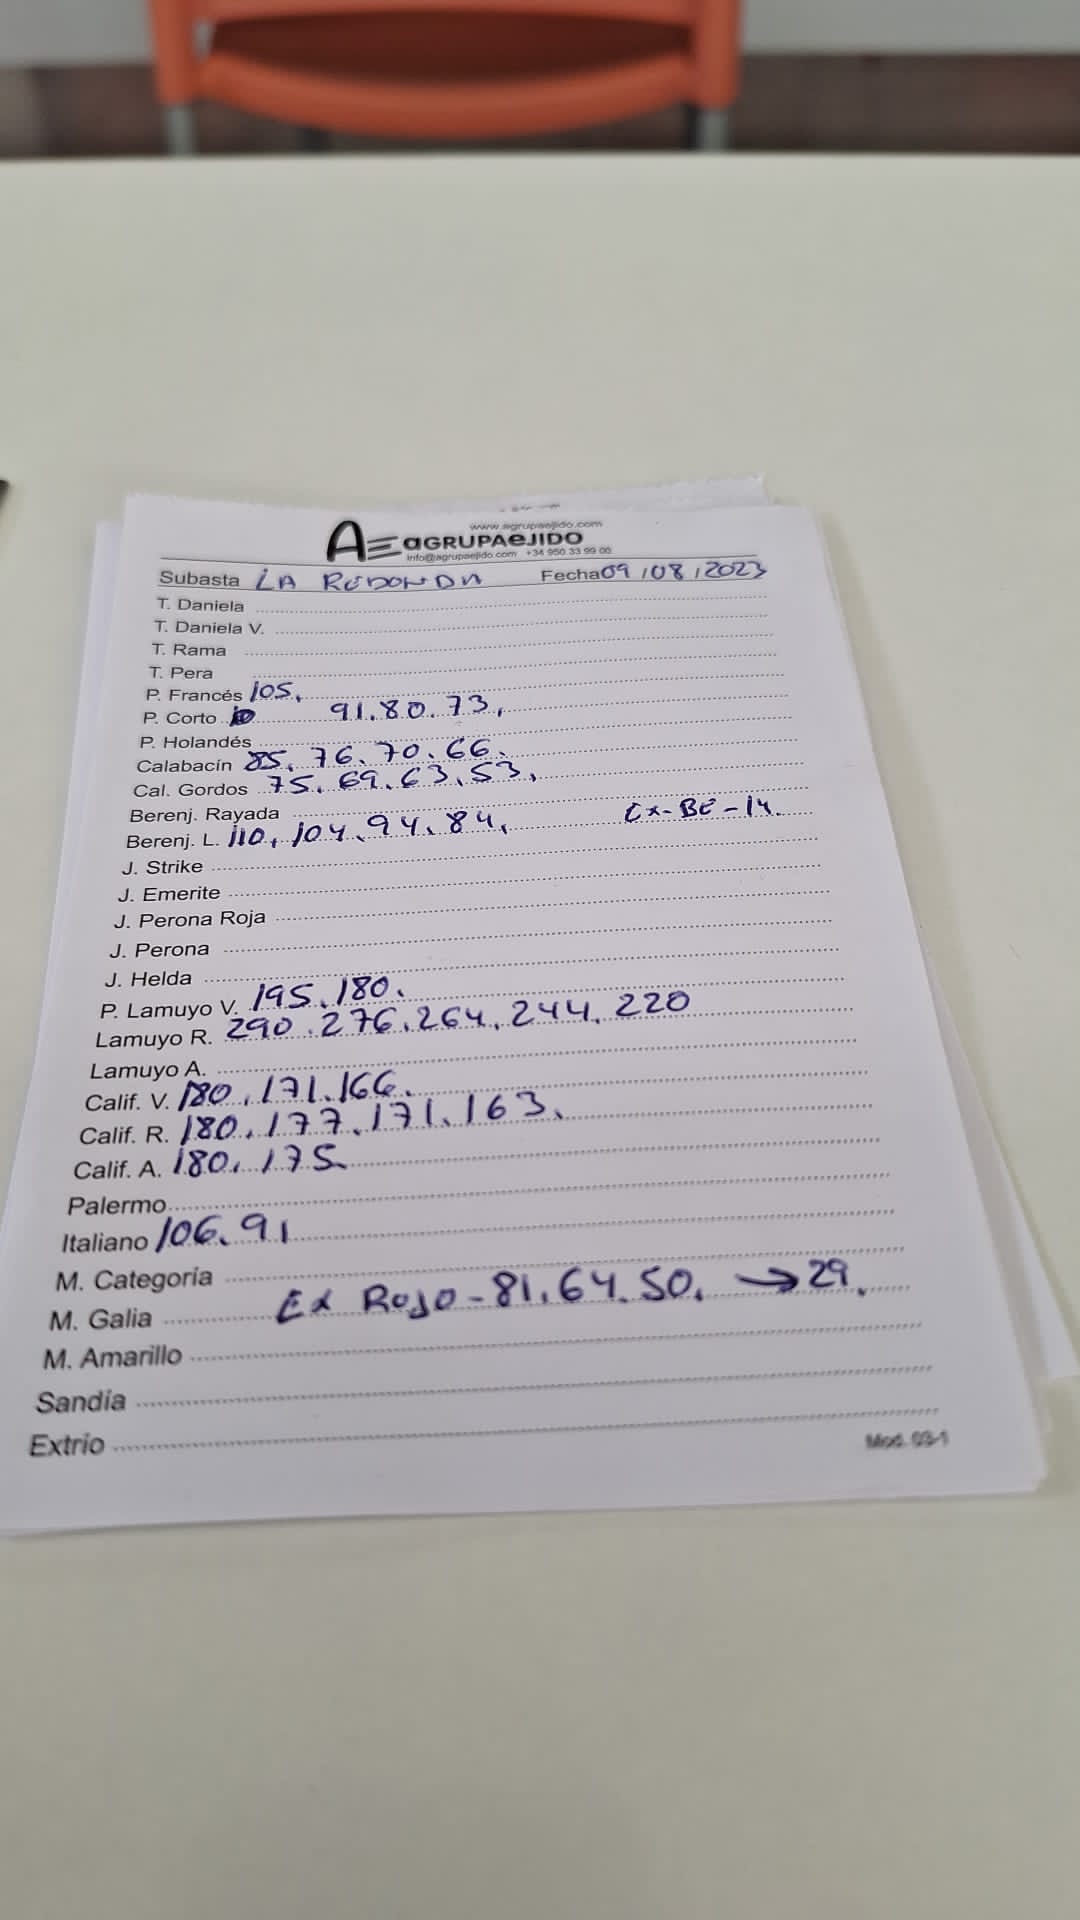 www.agrupaejido.com
AE aGRUPAeJIDO
info@agrupaejido.com +34 950 33 99 00
Subasta LA REDONDA Fecha 09/08/2023
T. Daniela
T. Daniela V.
T. Rama
T. Pera
P. Francés 105.
P. Corto 91.80.73.
P. Holandés
Calabacín 85. 76. 70. 66.
Cal. Gordos 75. 69. 63. 53.
Berenj. Rayada
Berenj. L. 110. 104. 94. 84. Ex-BE-14.
J. Strike
J. Emerite
J. Perona Roja
J. Perona
J. Helda
P. Lamuyo V. 195. 180.
Lamuyo R. 290. 276. 264. 244. 220
Lamuyo A.
Calif. V. 180. 171. 166.
Calif. R. 180. 177. 171. 163.
Calif. A. 180. 175.
Palermo
Italiano 106. 91
M. Categoría
M. Galia Ex Rojo - 81. 64. 50. → 29.
M. Amarillo
Sandía
Extrio
Mod. 03-1